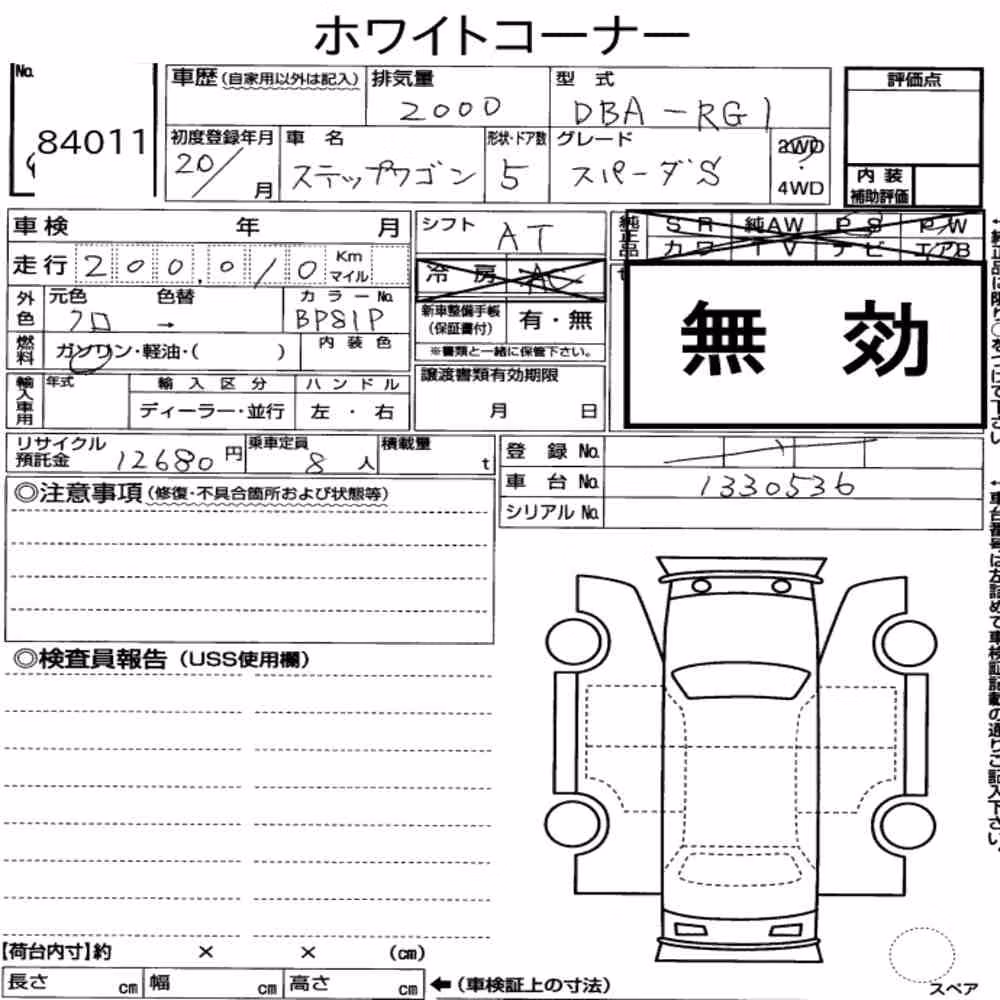 ホワイトコーナー
No. 84011
車歴(自家用以外は記入) 排気量 2000 型式 DBA-RG1
初度登録年月 20/ 月 車名 ステップワゴン 形状・ドア数 5 グレード スパーダS 2WD 4WD
評価点
内装補助評価
車検 年 月
走行 200,010 Km マイル
外色 元色 クロ 色替 → カラーNo. BP81P
燃料 ガソリン・軽油・( ) 内装色
輸入車用 年式 輸入区分 ディーラー・並行 ハンドル 左・右
シフト AT
冷房 AC
新車整備手帳(保証書付) 有・無
※書類と一緒に保管下さい。
譲渡書類有効期限 月 日
純正品 SR 純AW PS PW
カワ TV ナビ エアB
無効
リサイクル預託金 12680円 乗車定員 8人 積載量 t
登録No.
車台No. 1330536
シリアルNo.
◎注意事項(修復・不具合箇所および状態等)
◎検査員報告(USS使用欄)
【荷台内寸】約 × × (cm)
長さ cm 幅 cm 高さ cm ←(車検証上の寸法)
スペア
←純正品に限り○をつけて下さい
←車台番号は左詰めで車検証記載の通りご記入下さい。